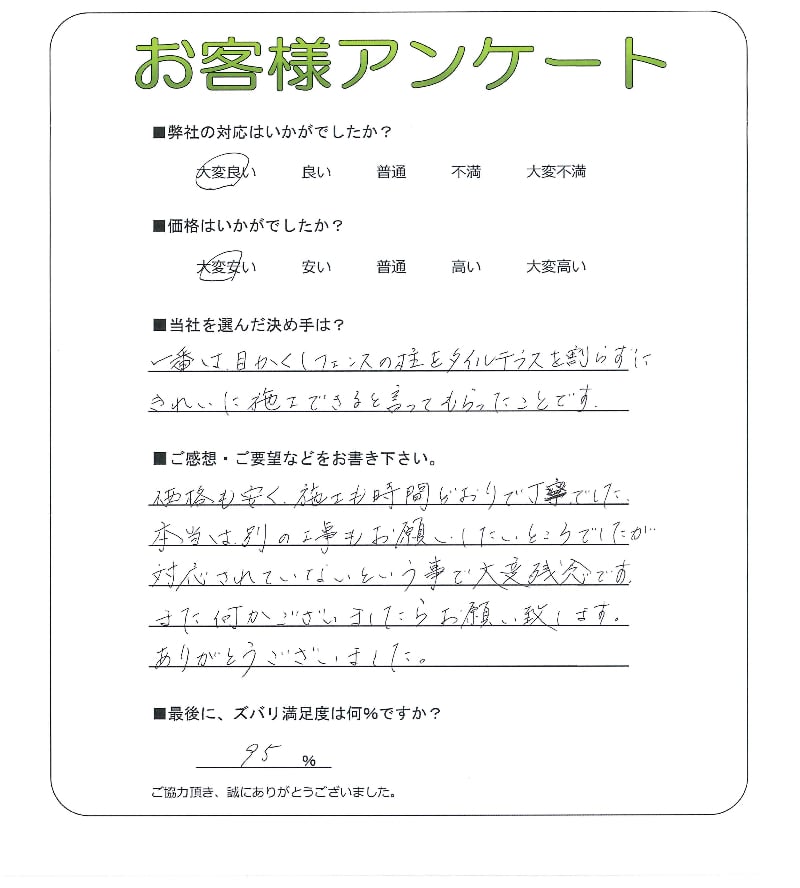 お客様アンケート
■弊社の対応はいかがでしたか？
大変良い 良い 普通 不満 大変不満
■価格はいかがでしたか？
大変安い 安い 普通 高い 大変高い
■当社を選んだ決め手は？
一番は、目かくしフェンスの柱をタイルテラスを割らずに
きれいに施工できると言ってもらったことです。
■ご感想・ご要望などをお書き下さい。
価格も安く、施工も時間どおりで丁寧でした。
本当は、別の工事もお願いしたいところでしたが
対応されていないという事で大変残念です。
また何かございましたらお願い致します。
ありがとうございました。
■最後に、ズバリ満足度は何％ですか？
95 ％
ご協力頂き、誠にありがとうございました。